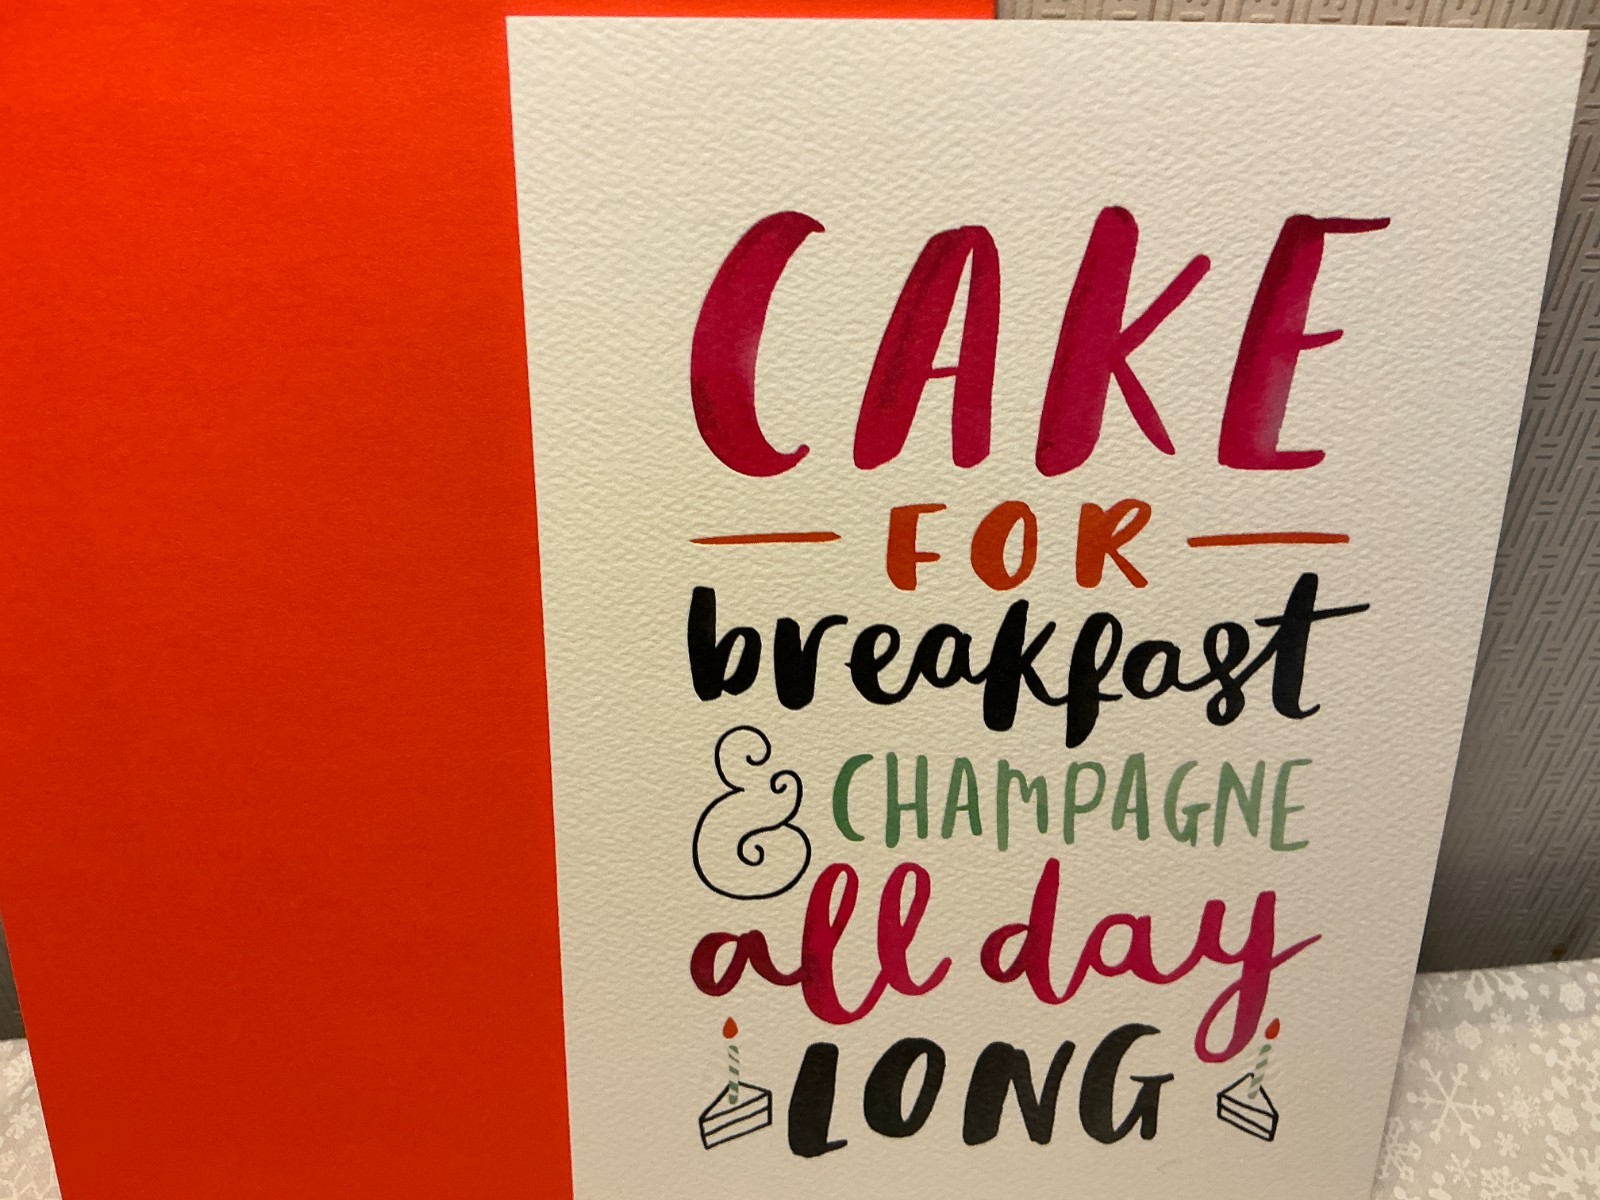 CAKE
FOR
breakfast
& CHAMPAGNE
all day
LONG